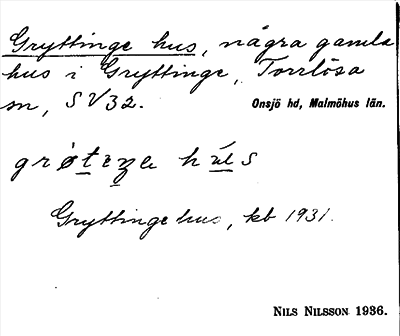 Gryttinge hus, några gamla
hus i Gryttinge, Torrlösa
sn, SV32. Onsjö hd, Malmöhus län.
grøteŋe hús
Gryttinge hus, kb 1931.
NILS NILSSON 1936.